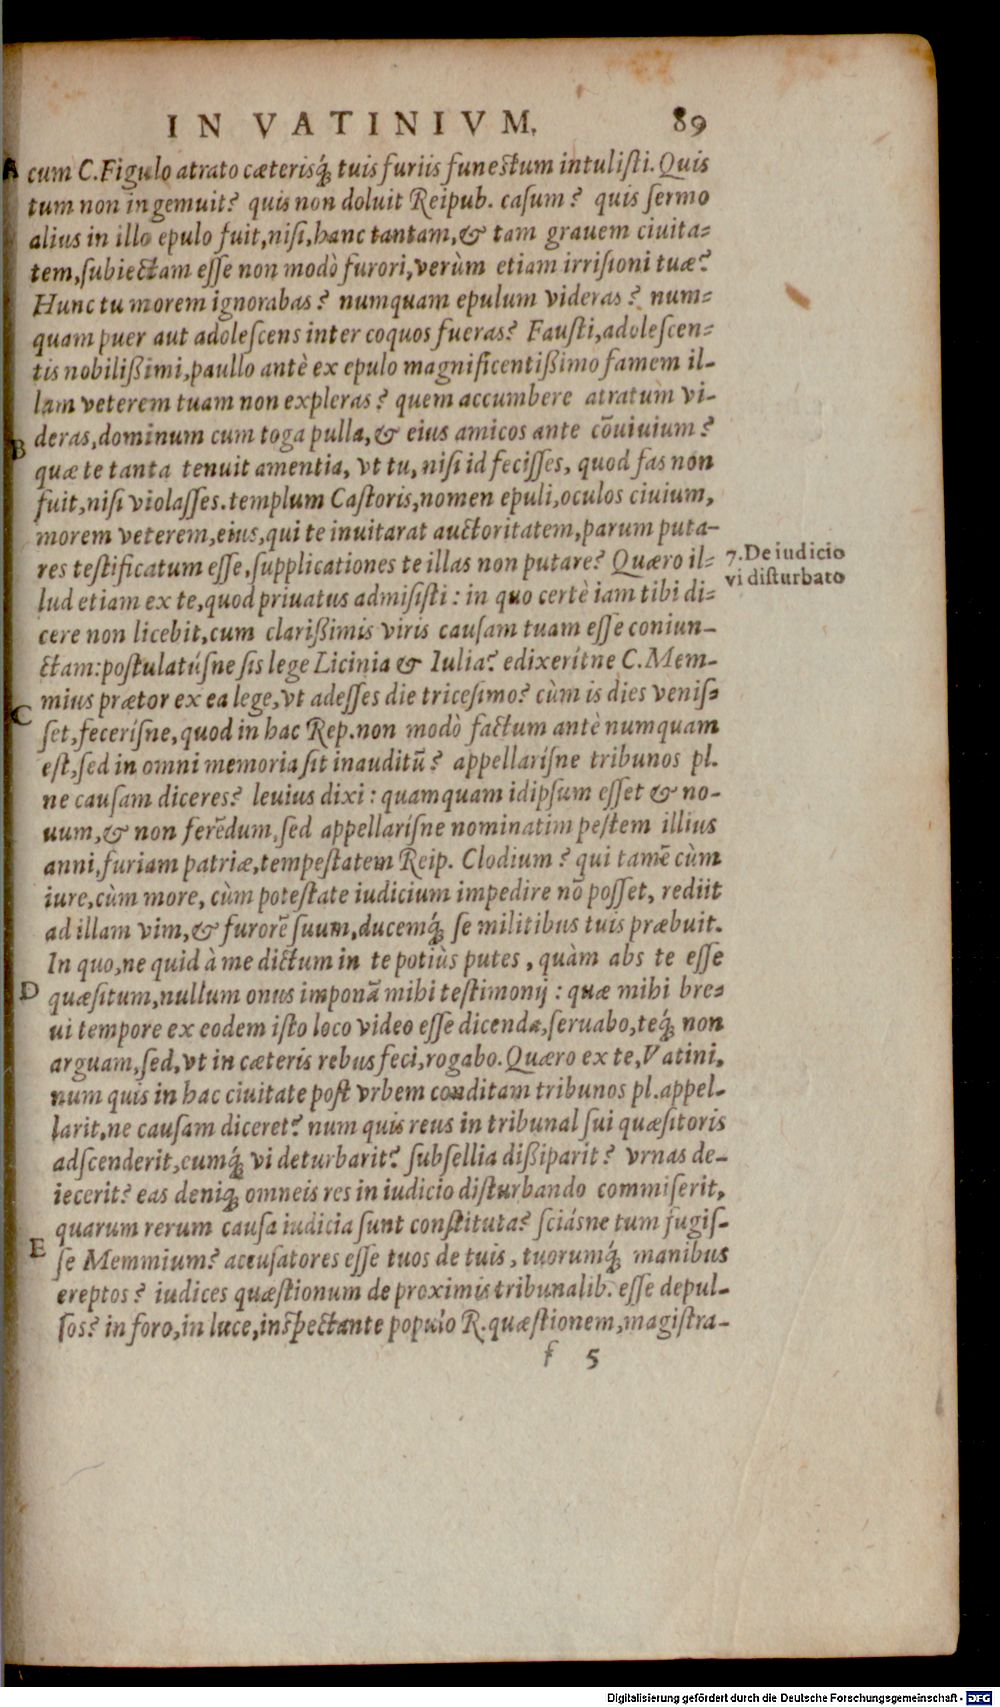 IN VATINIVM. 89
A cum C.Figulo atrato cæterisq́; tuis furiis funestum intulisti. Quis
tum non ingemuit? quis non doluit Reipub. casum? quis sermo
alius in illo epulo fuit, nisi, hanc tantam, & tam grauem ciuita=
tem, subiectam esse non modò furori, verùm etiam irrisioni tuæ?
Hunc tu morem ignorabas? numquam epulum videras? num=
quam puer aut adolescens inter coquos fueras? Fausti, adolescen=
tis nobilißimi, paullo antè ex epulo magnificentißimo famem il-
lam veterem tuam non expleras? quem accumbere atratum vi-
B deras, dominum cum toga pulla, & eius amicos ante cōuiuium?
quæ te tanta tenuit amentia, vt tu, nisi id fecisses, quod fas non
fuit, nisi violasses. templum Castoris, nomen epuli, oculos ciuium,
morem veterem, eius, qui te inuitarat auctoritatem, parum puta-
res testificatum esse, supplicationes te illas non putare? Quæro il=
7. De iudicio
vi disturbato
lud etiam ex te, quod priuatus admisisti: in quo certè iam tibi di=
cere non licebit, cum clarißimis viris causam tuam esse coniun-
ctam: postulatúsne sis lege Licinia & Iulia? edixerítne C. Mem-
C mius prætor ex ea lege, vt adesses die tricesimo? cùm is dies venis=
set, fecerísne, quod in hac Rep. non modò factum antè numquam
est, sed in omni memoria sit inauditū? appellarísne tribunos pl.
ne causam diceres? leuius dixi: quamquam id ipsum esset & no-
uum, & non ferēdum, sed appellarísne nominatim pestem illius
anni, furiam patriæ, tempestatem Reip. Clodium? qui tamē cùm
iure, cùm more, cùm potestate iudicium impedire nō posset, rediit
ad illam vim, & furorē suum, ducemq́; se militibus tuis præbuit.
In quo, ne quid à me dictum in te potiùs putes, quàm abs te esse
D quæsitum, nullum onus imponā mihi testimonij: quæ mihi bre=
ui tempore ex eodem isto loco video esse dicenda, seruabo, teq́; non
arguam, sed, vt in cæteris rebus feci, rogabo. Quæro ex te, Vatini,
num quis in hac ciuitate post vrbem conditam tribunos pl. appel-
larit, ne causam diceret? num quis reus in tribunal sui quæsitoris
adscenderit, eumq́; vi deturbarit? subsellia dißiparit? vrnas de-
iecerit? eas deniq; omneis res in iudicio disturbando commiserit,
quarum rerum causa iudicia sunt constituta? sciásne tum fugis-
E se Memmium? accusatores esse tuos de tuis, tuorumq́; manibus
ereptos? iudices quæstionum de proximis tribunalib. esse depul-
sos? in foro, in luce, inspectante populo R. quæstionem, magistra-
f 5
Digitalisierung gefördert durch die Deutsche Forschungsgemeinschaft - DFG